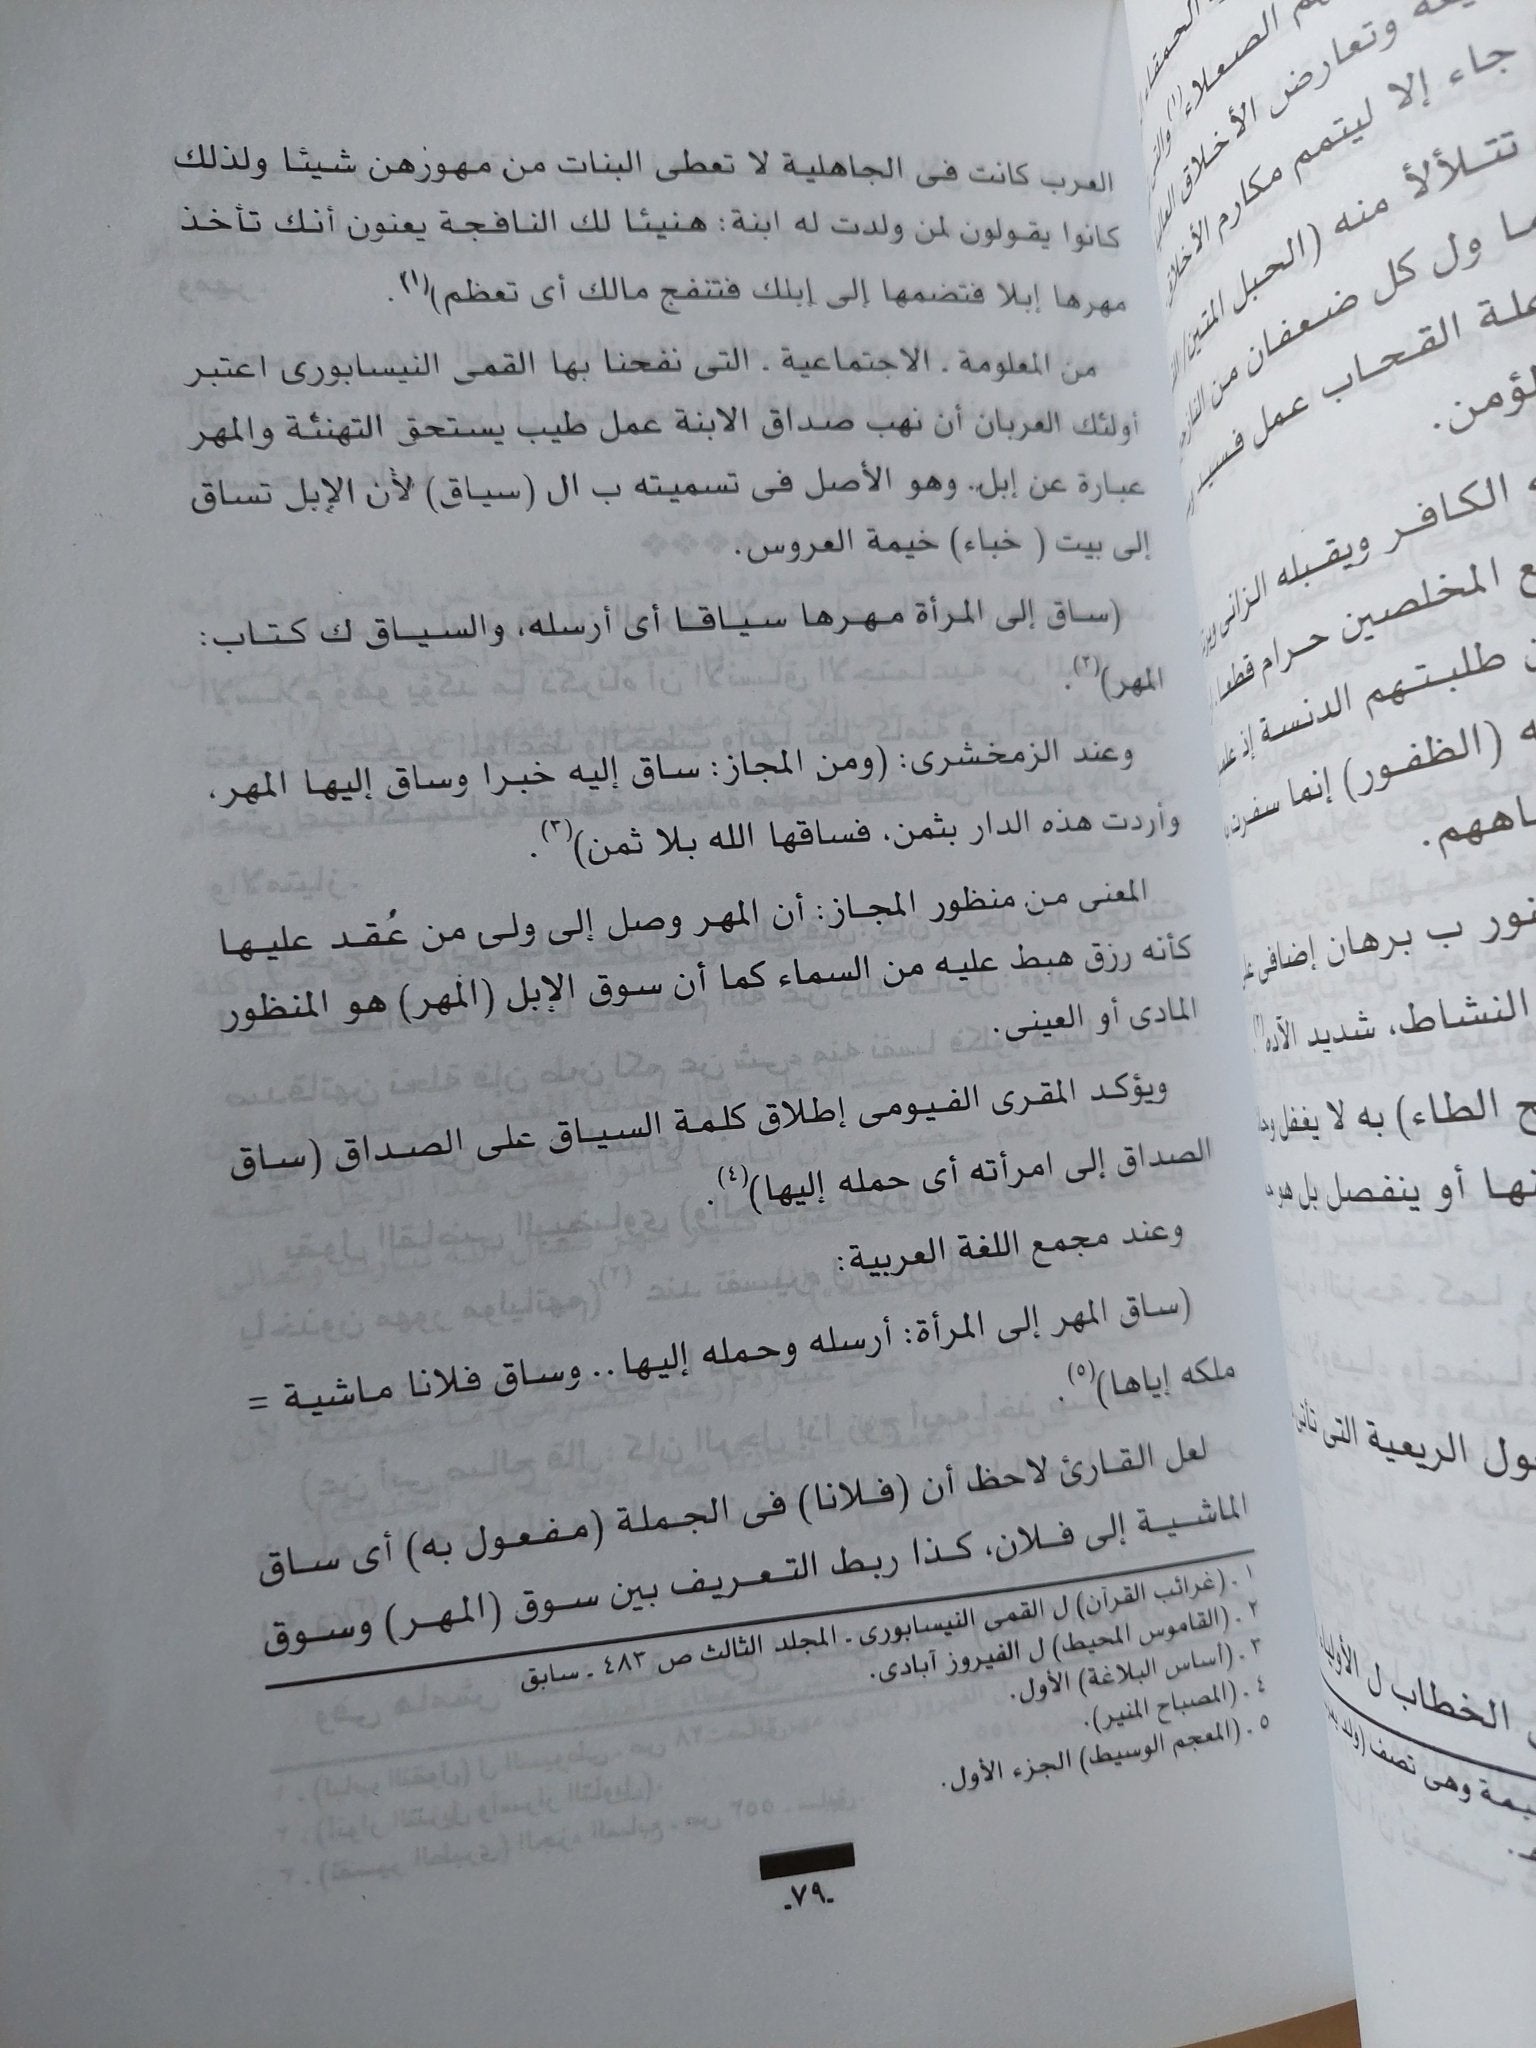 العرب كانت فى الجاهلية لا تعطى البنات من مهوزهن شيئا ولذلك
كانوا يقولون لمن ولدت له ابنة: هنيئا لك النافجة يعنون أنك تأخذ
مهرها إبلا فتضمها إلى إبلك فتنفج مالك أى تعظم)(١).
من المعلومة . الاجتماعية . التى نفحنا بها القمى النيسابورى اعتبر
أولئك العربان أن نهب صداق الابنة عمل طيب يستحق التهنئة والمهر
عبارة عن إبل. وهو الأصل فى تسميته ب ال (سياق) لأن الإبل تساق
إلى بيت ( خباء) خيمة العروس.
(ساق إلى المرأة مهرها سياقا أى أرسله، والسياق ك كتاب:
المهر)(٢).
وعند الزمخشرى: (ومن المجاز: ساق إليه خبرا وساق إليها المهر،
وأردت هذه الدار بثمن، فساقها الله بلا ثمن)(٣).
المعنى من منظور المجاز: أن المهر وصل إلى ولى من عُقد عليها
كأنه رزق هبط عليه من السماء كما أن سوق الإبل (المهر) هو المنظور
المادى أو العينى.
ويؤكد المقرى الفيومى إطلاق كلمة السياق على الصداق (ساق
الصداق إلى امرأته أى حمله إليها)(٤).
وعند مجمع اللغة العربية:
(ساق المهر إلى المرأة: أرسله وحمله إليها.. وساق فلانا ماشية =
ملكه إياها)(٥).
لعل القارئ لاحظ أن (فلانا) فى الجملة (مفعول به) أى ساق
الماشية إلى فلان، كذا ربط التعريف بين سوق (المهر) وسوق
١ . (غرائب القرآن) ل القمى النيسابورى . المجلد الثالث ص ٤٨٣ . سابق
٢ . (القاموس المحيط) ل الفيروز آبادى.
٣ . (أساس البلاغة) الأول.
٤ . (المصباح المنير).
٥ . (المعجم الوسيط) الجزء الأول.
.٧٩.
الصعلاء(١)
وتعارض الأخلاق
جاء إلا ليتمم مكارم الأخلاق
تتلألأ منه (الحبل المتين)
ول كل ضعفان من
القحاب عمل فسيد
الكافر ويقبله الزانى
المخلصين حرام قطعا
طلبتهم الدنسة إذ
(الظفور) إنما سفرت
ب برهان إضافى
النشاط، شديد الآده(٢)
الطاء) به لا يغفل
أو ينفصل بل هو
الريعية التى تأتى
الخطاب ل
وهى نصف (ولد